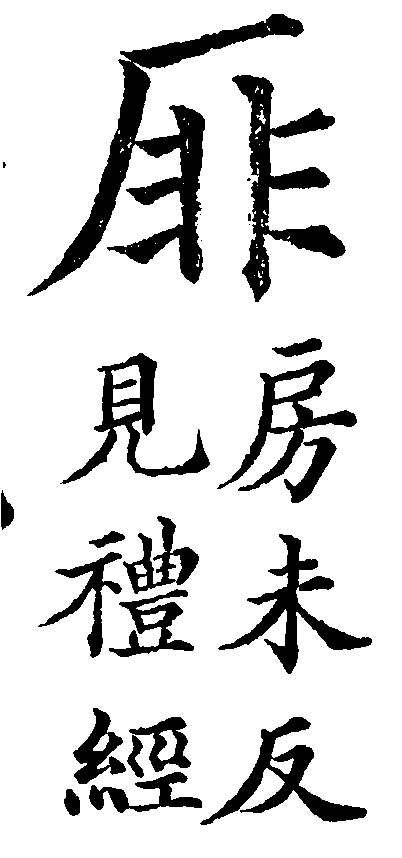 厞
房未反
見禮經